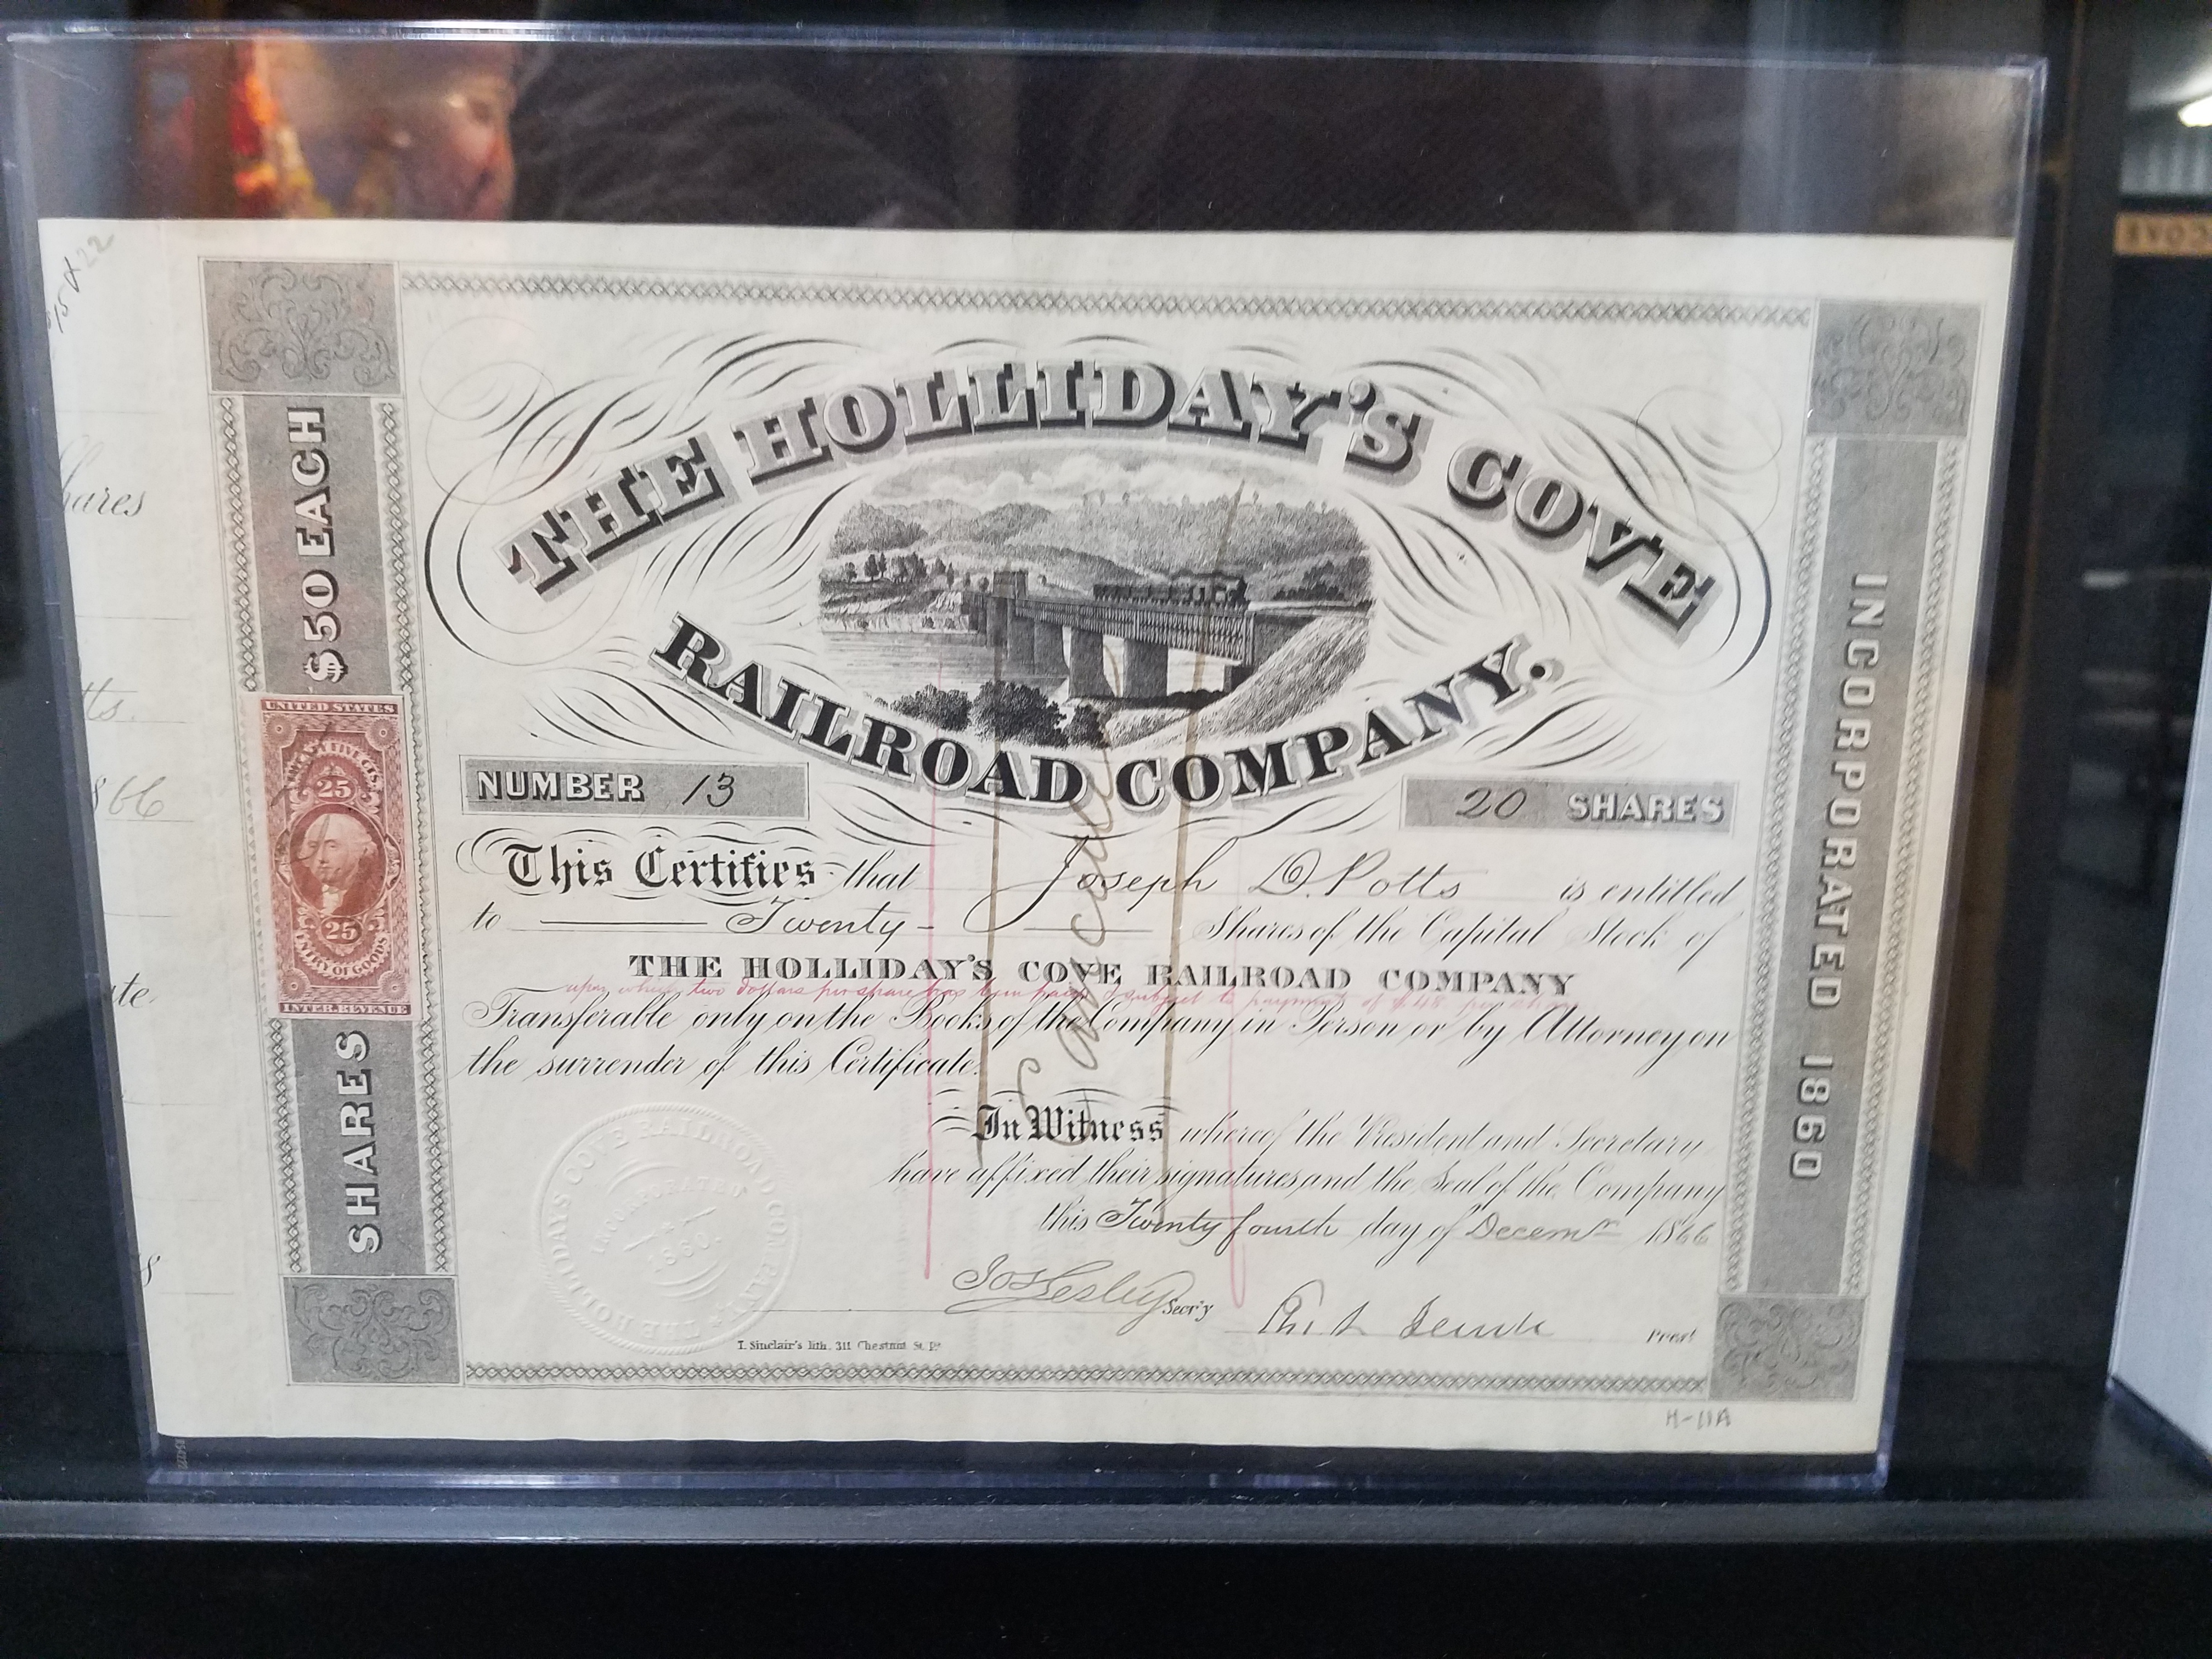 THE HOLLIDAY'S COVE
RAILROAD COMPANY.
NUMBER 13
20 SHARES
This Certifies that Joseph D. Potts is entitled
to Twenty Shares of the Capital Stock of
THE HOLLIDAY'S COVE RAILROAD COMPANY
upon which two dollars per share has been paid & subject to payment of $48 per share
Transferable only on the Books of the Company in Person or by Attorney on
the surrender of this Certificate.
In Witness whereof the President and Secretary
have affixed their signatures and the Seal of the Company
this Twenty fourth day of Decemr 1866
Jos Lesley Secr'y
Prest
T. Sinclair's lith. 311 Chestnut St.
Cancelled
SHARES $50 EACH
INCORPORATED 1860
UNITED STATES
TWENTY FIVE CTS.
25
25
ENTRY OF GOODS
INTER. REVENUE
THE HOLLIDAYS COVE RAILROAD COMPANY
INCORPORATED
1860.
H-11A
hares
tts.
866
ate.
s